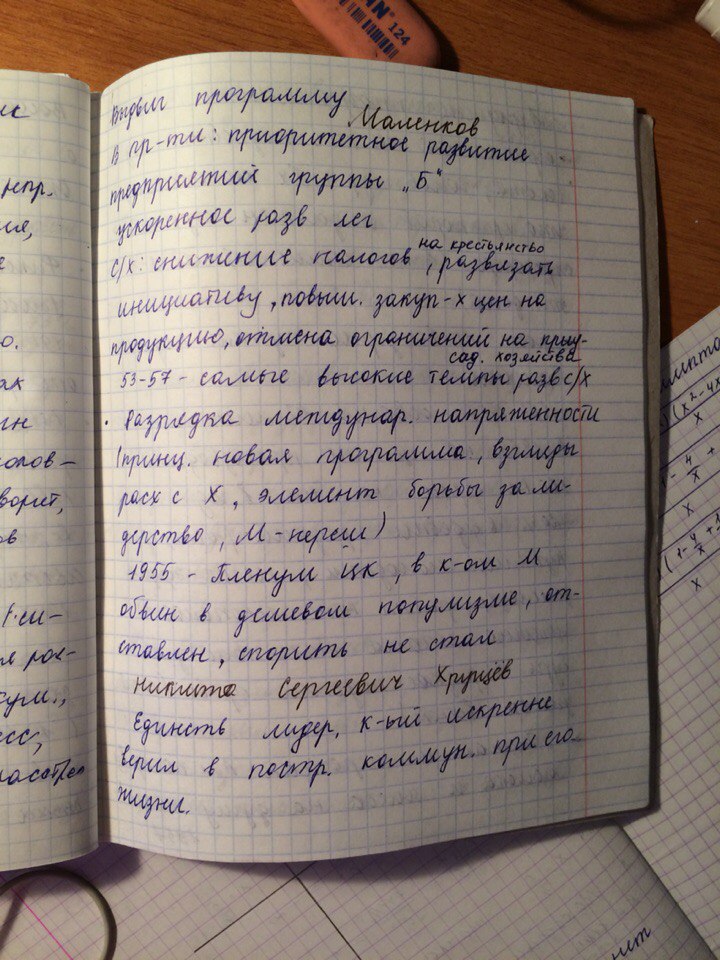 Выдвиг программу
Маленков
В пр-ти: приоритетное развитие
предприятий группы „Б"
ускоренное разв лег
на крестьянство
с/х: снижение налогов, развязать
инициативу, повыш. закуп-х цен на
продукцию, отмена ограничений на приу-
сад. хозяйства
53-57 - самые высокие темпы разв с/х
· Разрядка междунар. напряженности
(принц. новая программа, взгляды
расх с Х, элемент борьбы за ли-
дерство, М - нереш)
1955 - Пленум ЦК, в к-ом М
обвин в дешевом популизме, от-
ставлен, спорить не стал
Никита Сергеевич Хрущёв
Единств лидер, к-ый искренне
верил в постр. коммун. при его
жизни.
непр.
ия,
ю.
ах
голов-
ворит,
ов
си-
я рос-
кум.,
сс,
№ 124
(x²-4x
x
x
x